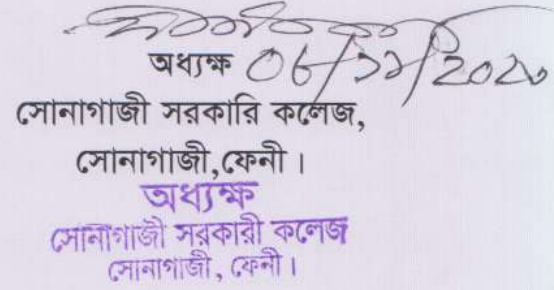 অধ্যক্ষ
সোনাগাজী সরকারি কলেজ,
সোনাগাজী,ফেনী।
অধ্যক্ষ
সোনাগাজী সরকারী কলেজ
সোনাগাজী, ফেনী।